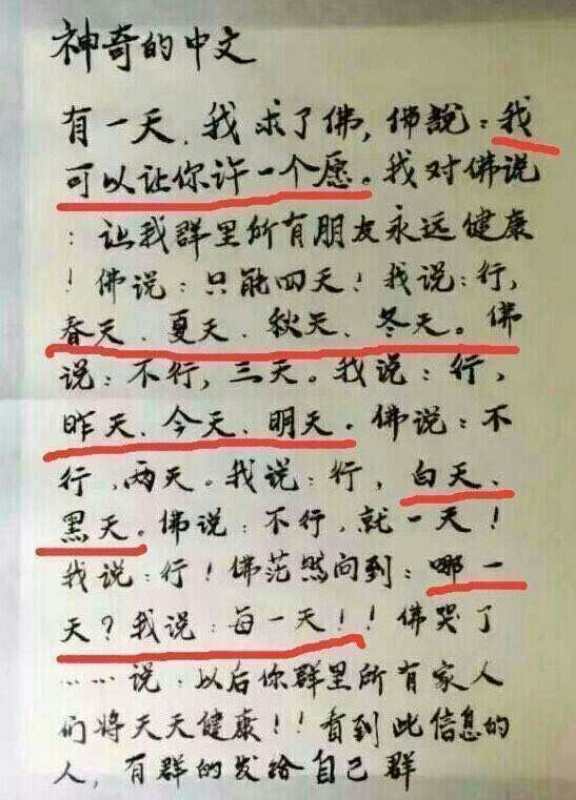 神奇的中文
有一天,我求了佛,佛說:我
可以让你许一个愿。我对佛说
:让我群里所有朋友永远健康
!佛说:只能四天!我说:行,
春天、夏天、秋天、冬天。佛
说:不行,三天。我说:行,
昨天、今天、明天。佛说:不
行,两天。我说:行,白天、
黑天。佛说:不行,就一天!
我说:行!佛茫然问到:哪一
天?我说:每一天!!佛哭了
……说:以后你群里所有家人
们将天天健康!!看到此信息的
人,有群的发给自己群